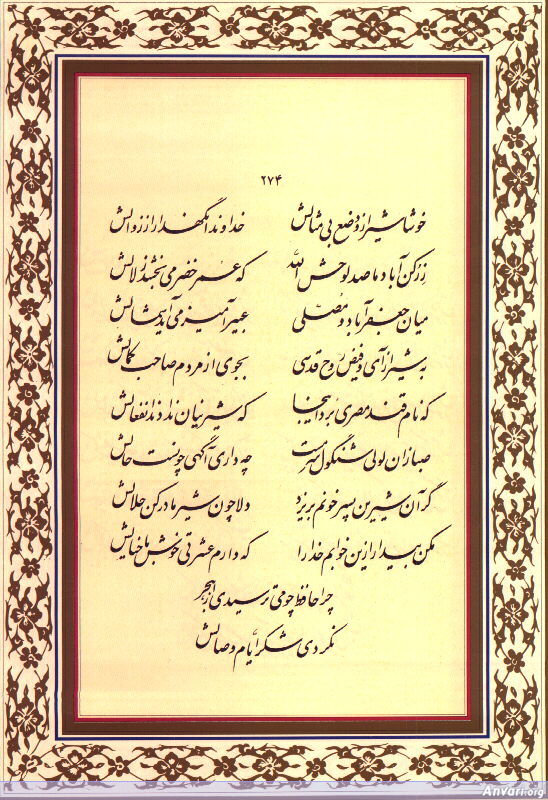 ۲۷۴
خوشا شیراز و وضع بی مثالش خداوندا نگهدار از زوالش
ز رکن آباد ما صد لوحش الله که عمر خضر می بخشد زلالش
میان جعفر آباد و مصلی عبیر آمیز می آید شمالش
به شیراز آی و فیض روح قدسی بجوی از مردم صاحب کمالش
که نام قند مصری برد اینجا که شیرینان ندادند انفعالش
صبا زان لولی شنگول سرمست چه داری آگهی چونست حالش
گر آن شیرین پسر خونم بریزد دلا چون شیر مادر کن حلالش
مکن بیدار ازین خوابم خدا را که دارم عشرتی خوش با خیالش
چرا حافظ چو می ترسیدی از هجر
نکردی شکر ایام وصالش
Anvari.org